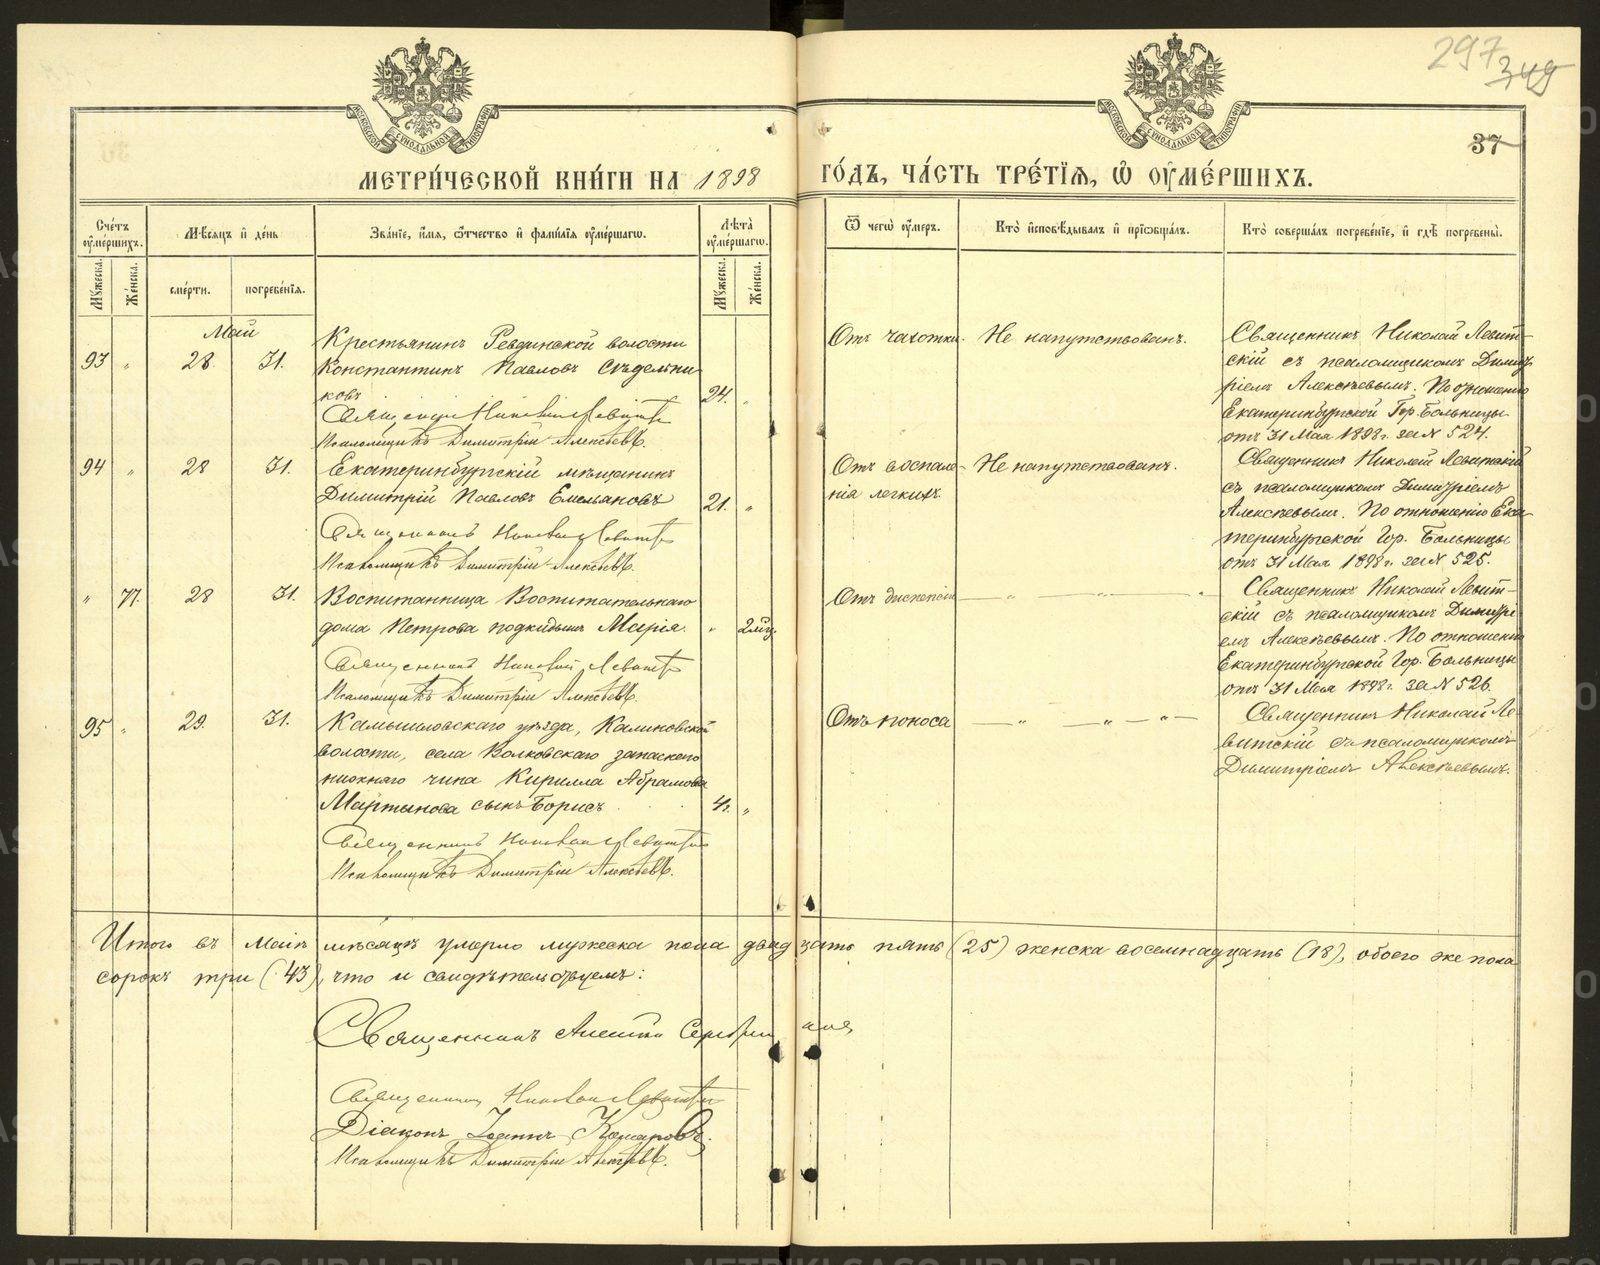 297
349
37
МЕТРИ́ЧЕСКОЙ КНИ́ГИ НА 1898 ГО́ДЪ, ЧА́СТЬ ТРЕ́ТІѦ, Ѽ ОУ҆МЕ́РШИХЪ.
Сче́тъ оу҆ме́ршихъ.
Мѣ́сяцъ и҆ де́нь
Зва́ніе, и҆́мя, ѻ҆́тчество и҆ фами́лія оу҆ме́ршагѡ.
Лѣта̀ оу҆ме́ршагѡ.
Ѿ чегѡ̀ оу҆́меръ.
Кто̀ и҆сповѣ́дывалъ и҆ прїѡбща́лъ.
Кто̀ соверша́лъ погребе́ніе, и҆ гдѣ̀ погребены̀.
Мꙋ́жеска.
Же́нска.
сме́рти.
погребе́нія.
Мꙋ́жеска.
Же́нска.
Май
93 " 28. 31.
Крестьянинъ Ревдинской волости
Константинъ Павловъ Сѣдельни
ковъ 24. "
Священникъ Николай Левитскій
Псаломщикъ Димитрій Алексѣевъ.
Отъ чахотки. Не напутствованъ.
Священникъ Николай Левит-
скій съ псаломщикомъ Димит
ріемъ Алексѣевымъ. По отношенію
Екатеринбургской Гор. Больницы
отъ 31 Мая 1898 г. за № 524.
94 " 28 31.
Екатеринбургскій мѣщанинъ
Димитрій Павловъ Емельяновъ 21. "
Священникъ Николай Левитскій
Псаломщикъ Димитрій Алексѣевъ.
Отъ воспале-
нія легкихъ.
Не напутствованъ.
Священникъ Николай Левитскій
съ псаломщикомъ Димитріемъ
Алексѣевымъ. По отношенію Ека-
теринбургской Гор. Больницы
отъ 31 Мая 1898 г. за № 525.
" 77. 28 31.
Воспитанница Воспитательнаго
дома Петрова подкидышъ Марія. " 2 мѣц.
Священникъ Николай Левитскій
Псаломщикъ Димитрій Алексѣевъ.
Отъ диспепсіи — " — " — "
Священникъ Николай Левит-
скій съ псаломщикомъ Димитрі
емъ Алексѣевымъ. По отношенію
Екатеринбургской Гор. Больницы
отъ 31 Мая 1898 г. за № 526.
95 " 29. 31.
Камышловскаго уѣзда, Калиновской
волости, села Волковскаго запаснаго
нижняго чина Кирилла Абрамова
Мартынова сынъ Борисъ. 4. "
Священникъ Николай Левитскій
Псаломщикъ Димитрій Алексѣевъ.
Отъ поноса — " — " — " —
Священникъ Николай Ле-
витскій съ псаломщикомъ
Димитріемъ Алексѣевымъ.
Итого въ Маѣ мѣсяцѣ умерло мужеска пола двадцать пять (25) женска восемнадцать (18), обоего же пола
сорокъ три (43), что и свидѣтельствуемъ:
Священникъ
Священникъ Николай Левитскій
Діаконъ Іоаннъ Комаровъ.
Псаломщикъ Димитрій Алексѣевъ.
METRIKI.GASO-URAL.RU